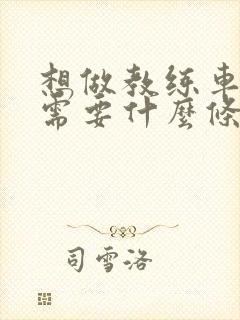 想做教练車
需要什麼條
司雪洛